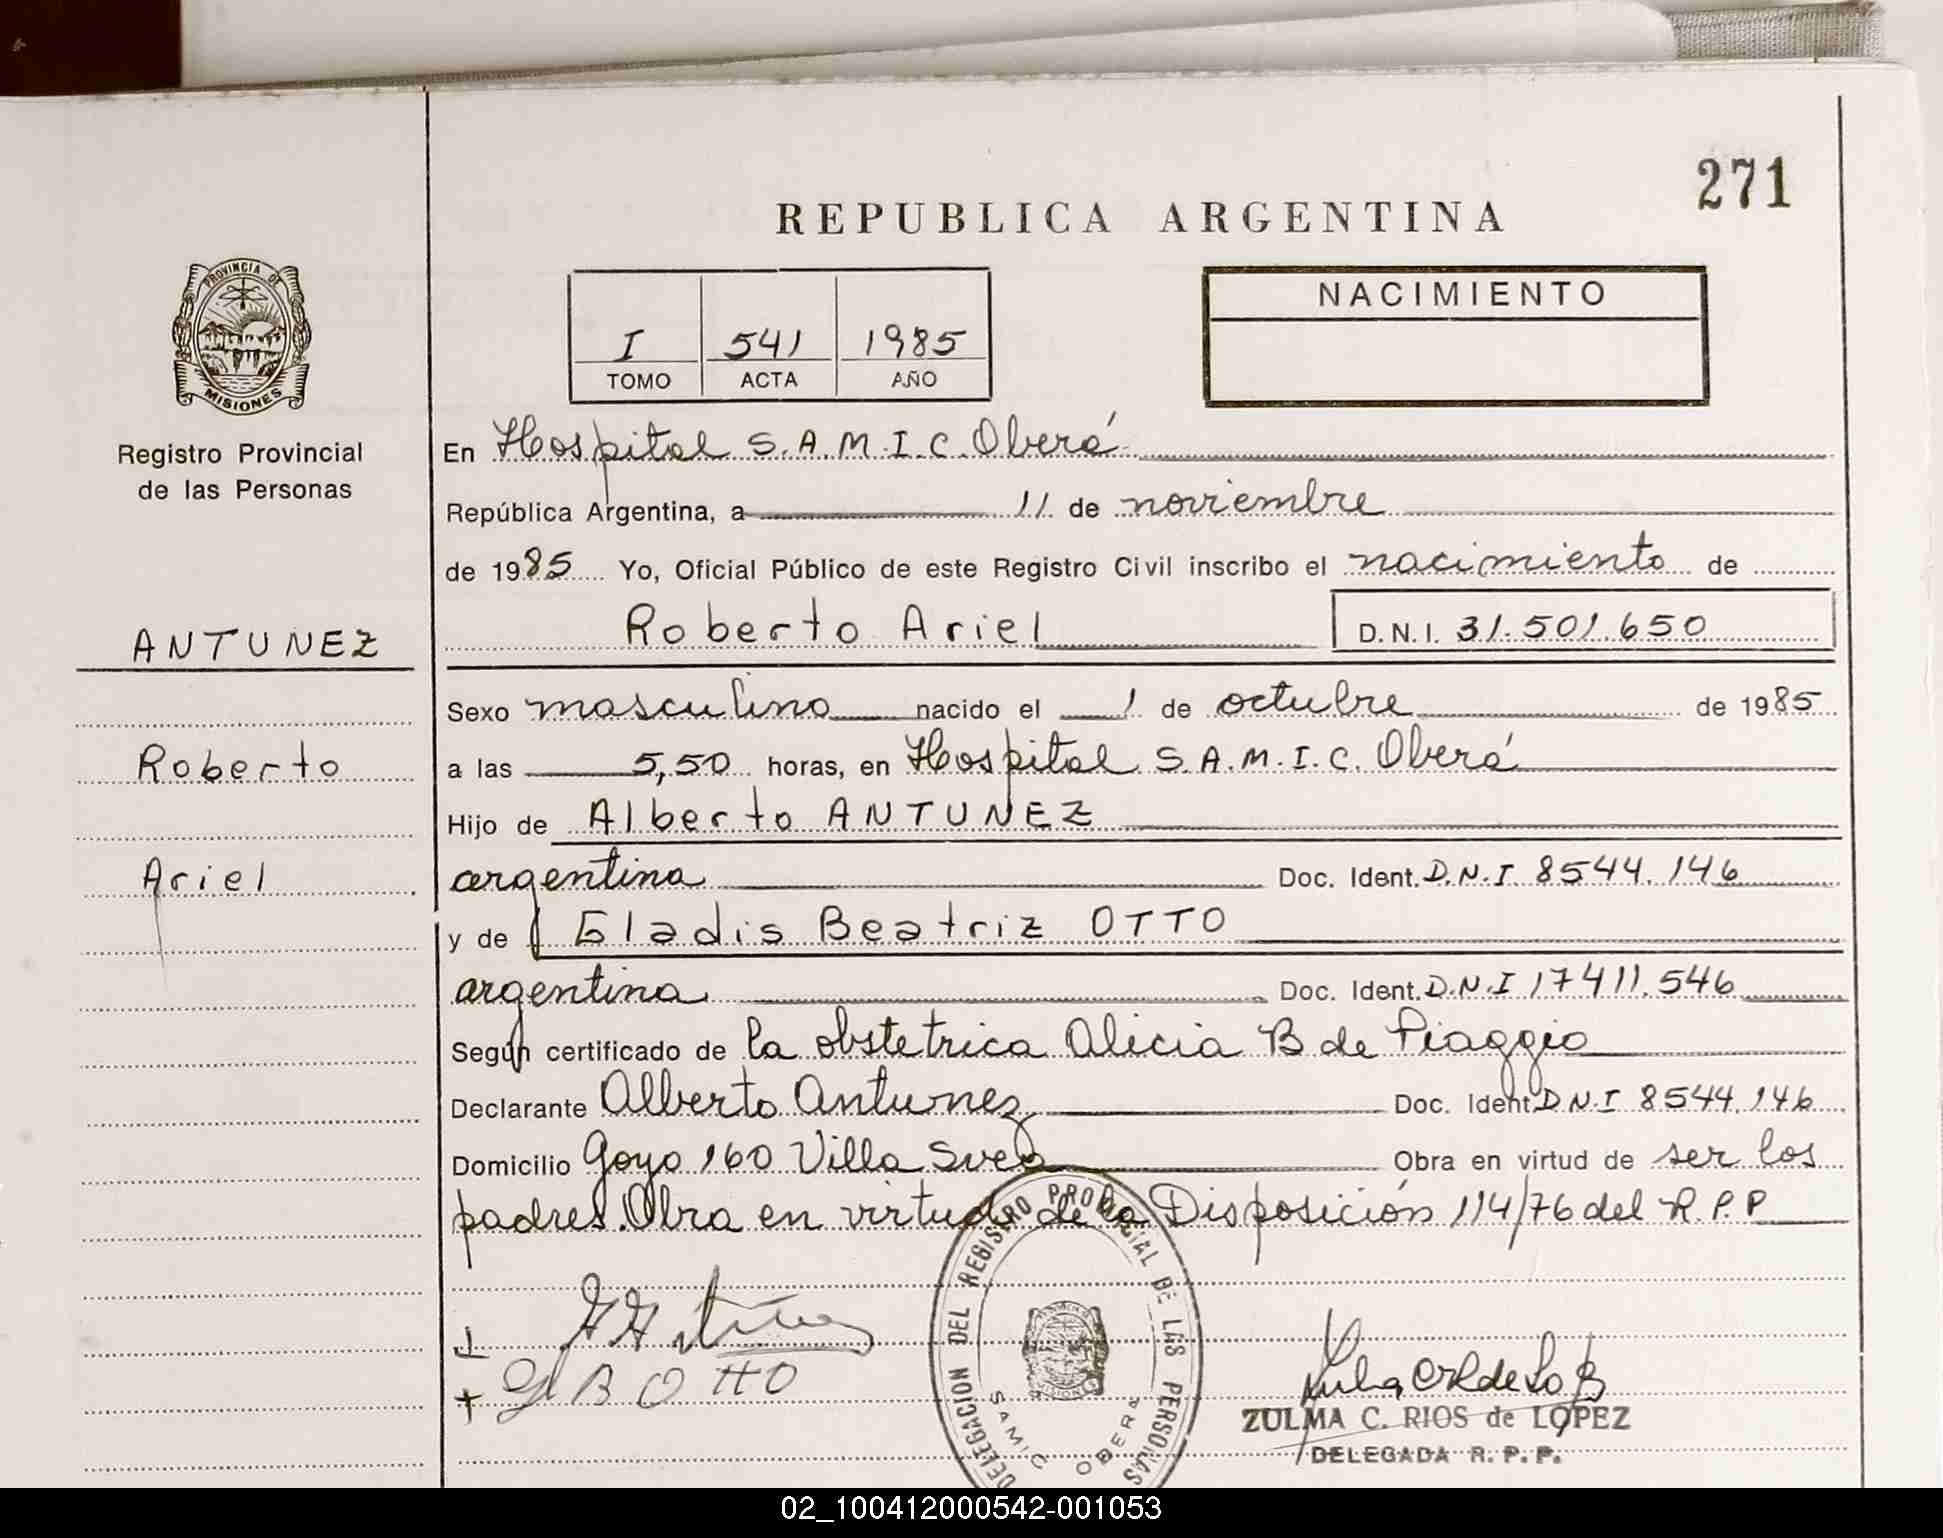 271
REPUBLICA ARGENTINA
PROVINCIA DE
MISIONES
Registro Provincial
de las Personas
I 541 1985
TOMO ACTA AÑO
NACIMIENTO
En Hospital S.A.M.I.C. Oberá
República Argentina, a 11 de noviembre
de 1985 Yo, Oficial Público de este Registro Civil inscribo el nacimiento de
Roberto Ariel D.N.I. 31.501.650
ANTUNEZ
Roberto
Ariel
Sexo masculino nacido el 1 de octubre de 1985
a las 5,50 horas, en Hospital S.A.M.I.C. Oberá
Hijo de Alberto ANTUNEZ
argentina Doc. Ident. D.N.I 8544.146
y de Gladis Beatriz OTTO
argentina Doc. Ident. D.N.I 17411.546
Según certificado de la obstetrica Alicia B de Piaggio
Declarante Alberto Antunez Doc. Ident D.N.I 8544.146
Domicilio Goyo 160 Villa Svea Obra en virtud de ser los
padres. Obra en virtud de la Disposición 114/76 del R.P.P
DELEGACION DEL REGISTRO PROVINCIAL DE LAS PERSONAS
MISIONES
SAMIC OBERA
G B OTTO
ZULMA C. RIOS de LOPEZ
DELEGADA R. P. P.
02_100412000542-001053